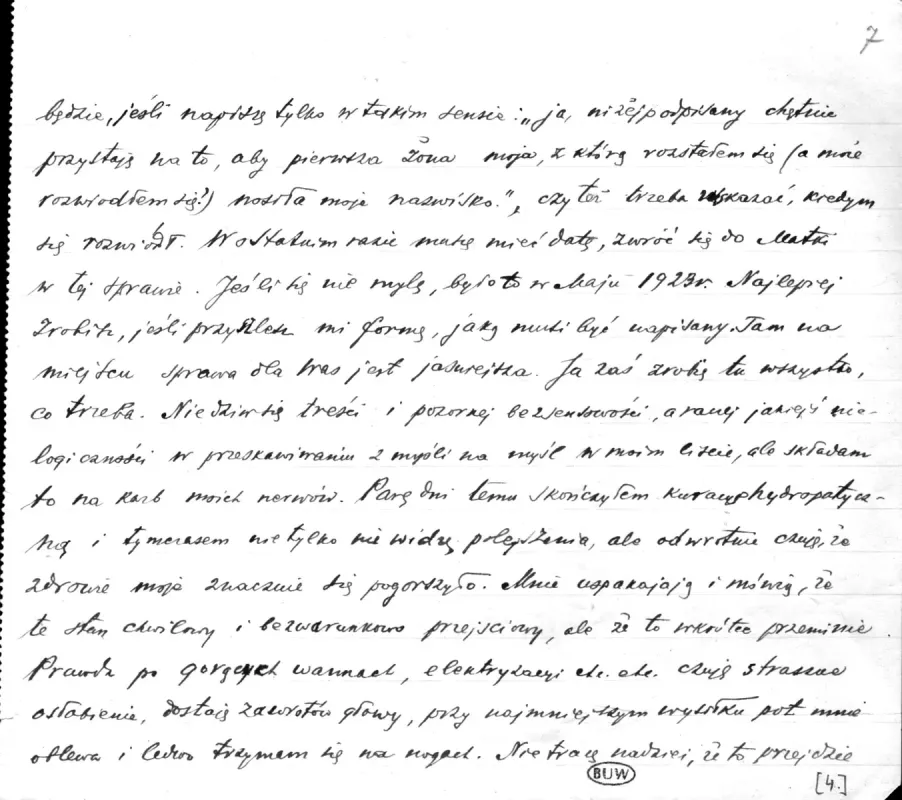 7
będzie, jeśli napiszę tylko w takim sensie: „ja, niżej podpisany chętnie
przystaję na to, aby pierwsza żona moja, z którą rozstałem się (a może
rozwiodłem się?) nosiła moje nazwisko.", czy też trzeba wskazać, kiedym
się rozwiódł. W ostatnim razie muszę mieć datę, zwróć się do Matki
w tej sprawie. Jeśli się nie mylę, było to w Maju 1923r. Najlepiej
zrobisz, jeśli przyszlesz mi formę, jaką musi być napisany. Tam na
miejscu sprawa dla Was jest jaśniejsza. Ja zaś zrobię tu wszystko,
co trzeba. Nie dziw się treści i pozornej bezsensowości, a raczej jakiejś nie-
logiczności w przeskakiwaniu z myśli na myśl w moim liście, ale składam
to na karb moich nerwów. Parę dni temu skończyłem kurację hydropatycz-
ną i tymczasem nie tylko nie widzę polepszenia, ale odwrotnie czuję, że
zdrowie moje znacznie się pogorszyło. Mnie uspakajają i mówią, że
te stan chwilowy i bezwarunkowo przejściowy, ale że to wkrótce przeminie.
Prawda po gorących wannach, elektryzacyi etc. etc. czuję straszne
osłabienie, dostaję zawrotów głowy, przy najmniejszym wysiłku pot mnie
oblewa i ledwo trzymam się na nogach. Nie tracę nadziei, że to przejdzie
BUW
[4.]